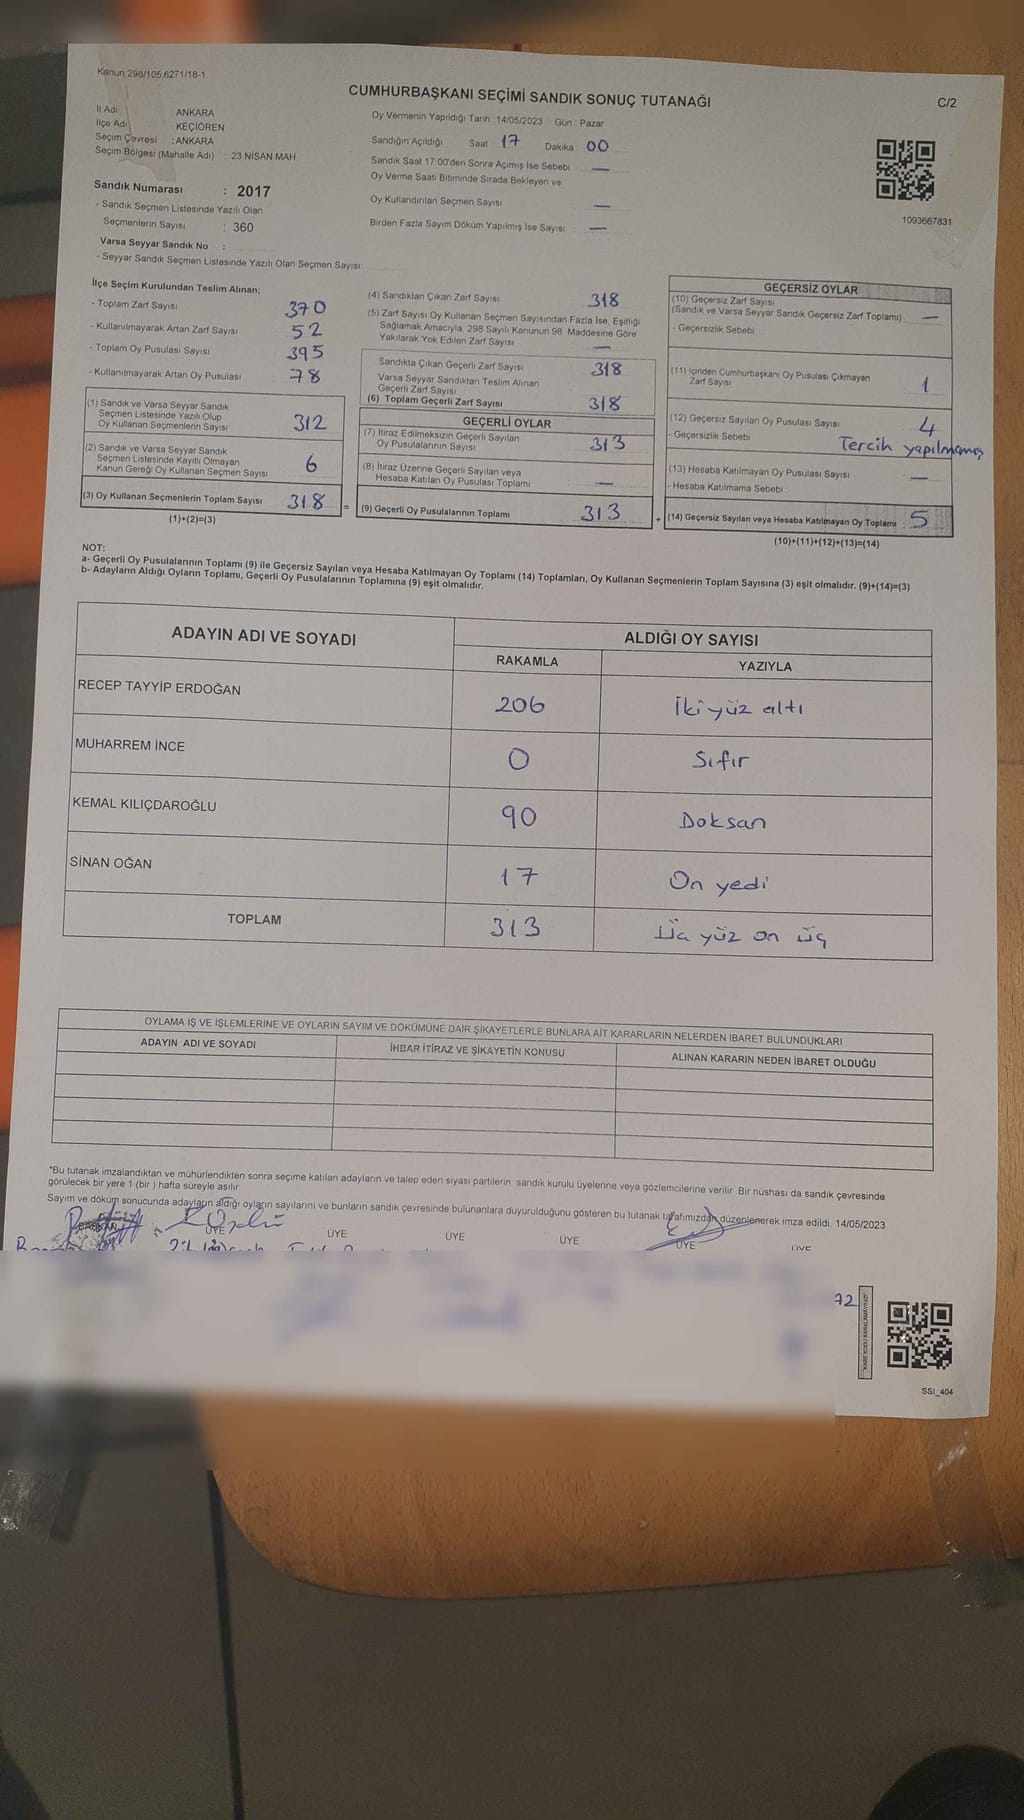 Kanun:298/105,6271/18-1
CUMHURBAŞKANI SEÇİMİ SANDIK SONUÇ TUTANAĞI
C/2
İl Adı ANKARA
İlçe Adı KEÇİÖREN
Seçim Çevresi : ANKARA
Seçim Bölgesi (Mahalle Adı) : 23 NİSAN MAH
Sandık Numarası : 2017
- Sandık Seçmen Listesinde Yazılı Olan
Seçmenlerin Sayısı : 360
Varsa Seyyar Sandık No :
- Seyyar Sandık Seçmen Listesinde Yazılı Olan Seçmen Sayısı:
Oy Vermenin Yapıldığı Tarih : 14/05/2023 Gün : Pazar
Sandığın Açıldığı Saat 17 Dakika 00
Sandık Saat 17:00'den Sonra Açımış İse Sebebi —
Oy Verme Saati Bitiminde Sırada Bekleyen ve
Oy Kullandırılan Seçmen Sayısı —
Birden Fazla Sayım Döküm Yapılmış İse Sayısı —
1093667831
İlçe Seçim Kurulundan Teslim Alınan;
- Toplam Zarf Sayısı 370
- Kullanılmayarak Artan Zarf Sayısı : 52
- Toplam Oy Pusulası Sayısı : 395
- Kullanılmayarak Artan Oy Pusulası : 78
(1) Sandık ve Varsa Seyyar Sandık
Seçmen Listesinde Yazılı Olup
Oy Kullanan Seçmenlerin Sayısı 312
(2) Sandık ve Varsa Seyyar Sandık
Seçmen Listesinde Kayıtlı Olmayan
Kanun Gereği Oy Kullanan Seçmen Sayısı 6
(3) Oy Kullanan Seçmenlerin Toplam Sayısı 318 =
(1)+(2)=(3)
(4) Sandıktan Çıkan Zarf Sayısı 318
(5) Zarf Sayısı Oy Kullanan Seçmen Sayısından Fazla İse, Eşitliği
Sağlamak Amacıyla, 298 Sayılı Kanunun 98. Maddesine Göre
Yakılarak Yok Edilen Zarf Sayısı —
Sandıkta Çıkan Geçerli Zarf Sayısı 318
Varsa Seyyar Sandıktan Teslim Alınan
Geçerli Zarf Sayısı
(6) Toplam Geçerli Zarf Sayısı 318
GEÇERLİ OYLAR
(7) İtiraz Edilmeksizin Geçerli Sayılan
Oy Pusulalarının Sayısı 313
(8) İtiraz Üzerine Geçerli Sayılan veya
Hesaba Katılan Oy Pusulası Toplamı —
(9) Geçerli Oy Pusulalarının Toplamı 313 +
GEÇERSİZ OYLAR
(10) Geçersiz Zarf Sayısı
(Sandık ve Varsa Seyyar Sandık Geçersiz Zarf Toplamı) —
- Geçersizlik Sebebi
(11) İçinden Cumhurbaşkanı Oy Pusulası Çıkmayan
Zarf Sayısı 1
(12) Geçersiz Sayılan Oy Pusulası Sayısı 4
- Geçersizlik Sebebi Tercih yapılmamış
(13) Hesaba Katılmayan Oy Pusulası Sayısı —
- Hesaba Katılmama Sebebi
(14) Geçersiz Sayılan veya Hesaba Katılmayan Oy Toplamı 5
(10)+(11)+(12)+(13)=(14)
NOT:
a- Geçerli Oy Pusulalarının Toplamı (9) ile Geçersiz Sayılan veya Hesaba Katılmayan Oy Toplamı (14) Toplamları, Oy Kullanan Seçmenlerin Toplam Sayısına (3) eşit olmalıdır. (9)+(14)=(3)
b- Adayların Aldığı Oyların Toplamı, Geçerli Oy Pusulalarının Toplamına (9) eşit olmalıdır.
ADAYIN ADI VE SOYADI ALDIĞI OY SAYISI
RAKAMLA YAZIYLA
RECEP TAYYİP ERDOĞAN 206 İki yüz altı
MUHARREM İNCE 0 Sıfır
KEMAL KILIÇDAROĞLU 90 Doksan
SİNAN OĞAN 17 On yedi
TOPLAM 313 Üç yüz on üç
OYLAMA İŞ VE İŞLEMLERİNE VE OYLARIN SAYIM VE DÖKÜMÜNE DAİR ŞİKAYETLERLE BUNLARA AİT KARARLARIN NELERDEN İBARET BULUNDUKLARI
ADAYIN ADI VE SOYADI İHBAR İTİRAZ VE ŞİKAYETİN KONUSU ALINAN KARARIN NEDEN İBARET OLDUĞU
*Bu tutanak imzalandıktan ve mühürlendikten sonra seçime katılan adayların ve talep eden siyasi partilerin sandık kurulu üyelerine veya gözlemcilerine verilir. Bir nüshası da sandık çevresinde
görülecek bir yere 1 (bir) hafta süreyle asılır.
Sayım ve döküm sonucunda adayların aldığı oyların sayılarını ve bunların sandık çevresinde bulunanlara duyurulduğunu gösteren bu tutanak tarafımızdan düzenlenerek imza edildi. 14/05/2023
BAŞKAN ÜYE ÜYE ÜYE ÜYE ÜYE ÜYE
72
SSI_404